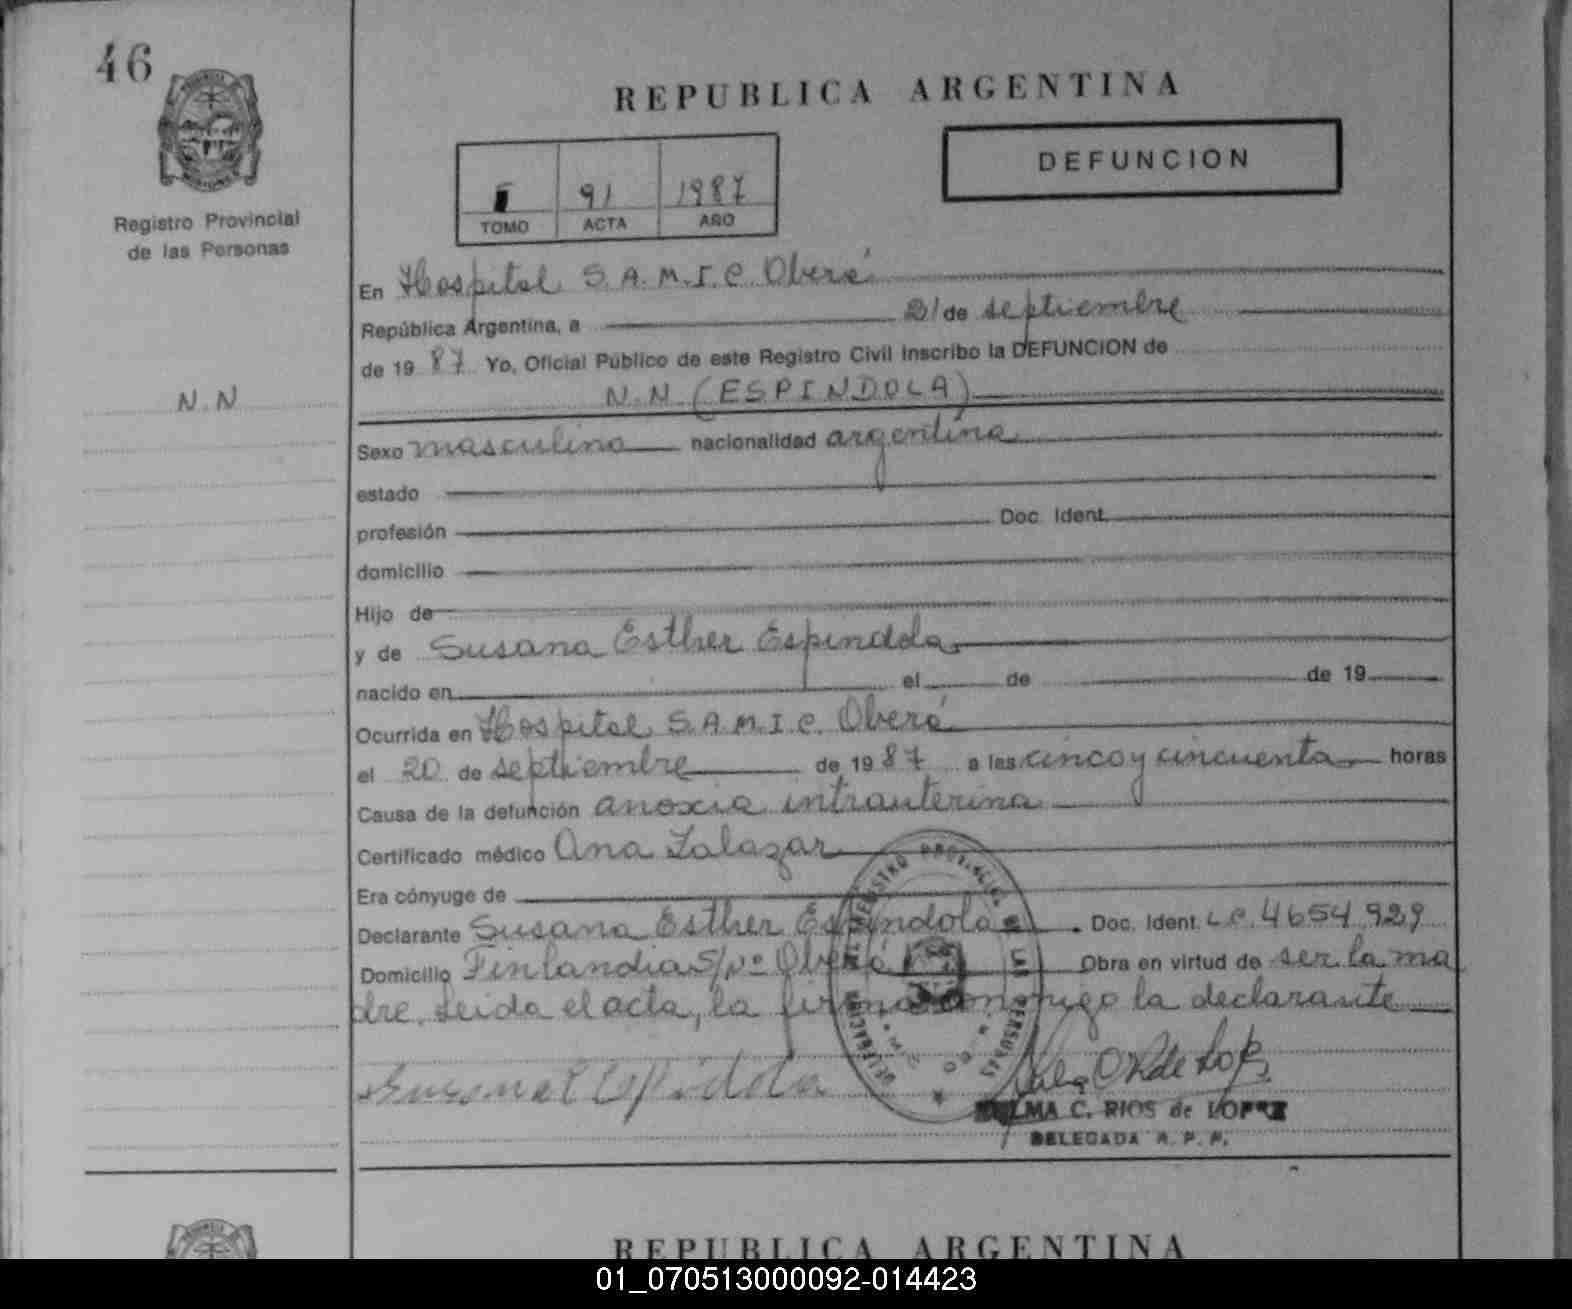 46
REPUBLICA ARGENTINA
DEFUNCION
91 1987
TOMO ACTA AÑO
Registro Provincial
de las Personas
En Hospital S.A.M.I.C. Oberá
República Argentina, a 21 de septiembre
de 1987 Yo, Oficial Público de este Registro Civil inscribo la DEFUNCION de
N.N
N.N. (ESPINDOLA)
Sexo masculino nacionalidad argentina
estado
profesión Doc. Ident.
domicilio
Hijo de
y de Susana Esther Espindola
nacido en el de de 19
Ocurrida en Hospital S.A.M.I.C. Oberá
el 20 de septiembre de 1987 a las cinco y cincuenta horas
Causa de la defunción anoxia intrauterina
Certificado médico Ana Zalazar
Era cónyuge de
Declarante Susana Esther Espindola. Doc. Ident. L.C. 4654.929
Domicilio Finlandia S/Nº Oberá Obra en virtud de ser la ma
dre. Leida el acta, la firma conmigo la declarante
Susana E Espindola
REGISTRO PROVINCIAL DE LAS PERSONAS
DELEGACION
MA C. RIOS de LOPEZ
DELEGADA R. P. P.
REPUBLICA ARGENTINA
01_070513000092-014423